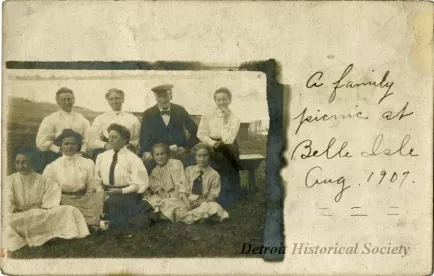 A family
picnic at
Belle Isle
Aug. 1907.
Detroit Historical Society